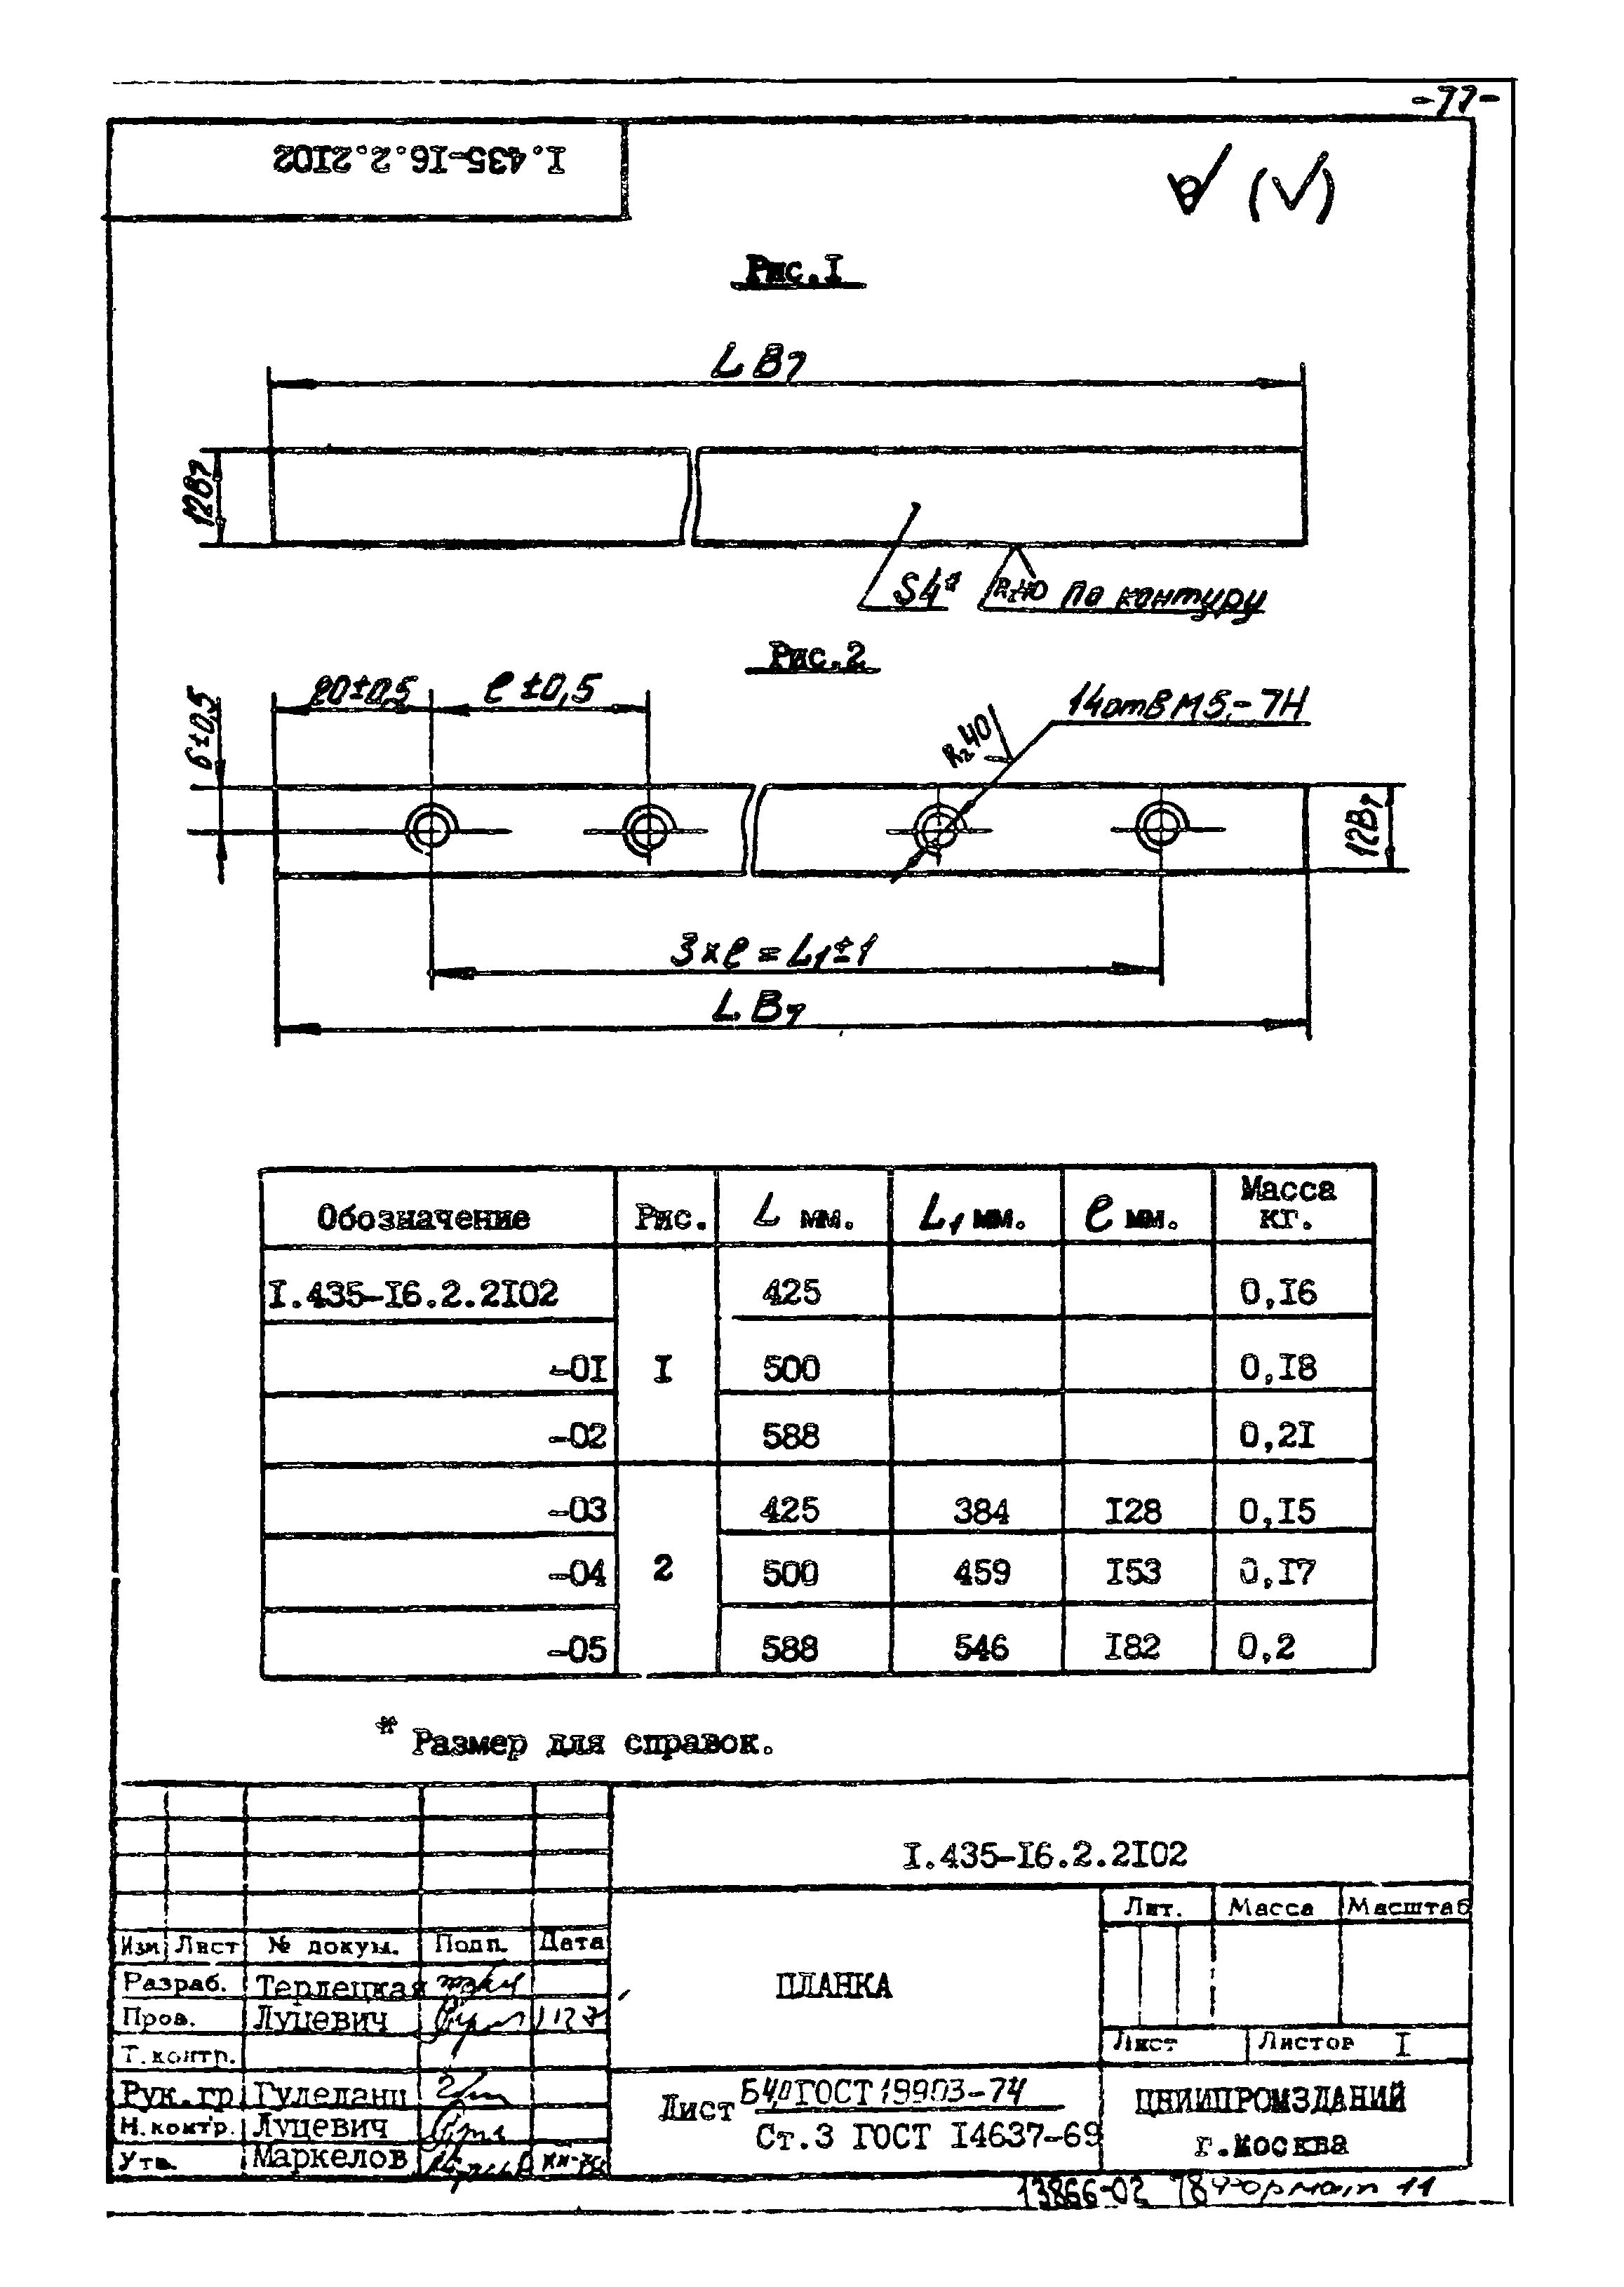 -77-
I.435-I6.2.2I02
(√)
Рис.I
L В7
12В7
S4*
Rz40 по контуру
Рис.2
20±0,5
ℓ ±0,5
6±0,5
Rz40
14 отв М5-7Н
12В7
3×ℓ = L₁±1
L В7
Обозначение Рис. L мм. L₁ мм. ℓ мм. Масса кг.
I.435-I6.2.2I02 425 0,I6
-0I I 500 0,I8
-02 588 0,2I
-03 425 384 I28 0,I5
-04 2 500 459 I53 0,I7
-05 588 546 I82 0,2
* Размер для справок.
I.435-I6.2.2I02
Изм Лист № докум. Подп. Дата
Разраб. Терлецкая
Пров. Луцевич
Т.контр.
Рук.гр Гулеланц
Н.контр. Луцевич
Утв. Маркелов
ПЛАНКА
Лит. Масса Масштаб
Лист Листов I
Лист Б4,0 ГОСТ 19903-74
Ст.3 ГОСТ I4637-69
ЦНИИПРОМЗДАНИЙ
г.Москва
13866-02 78 Формат 11